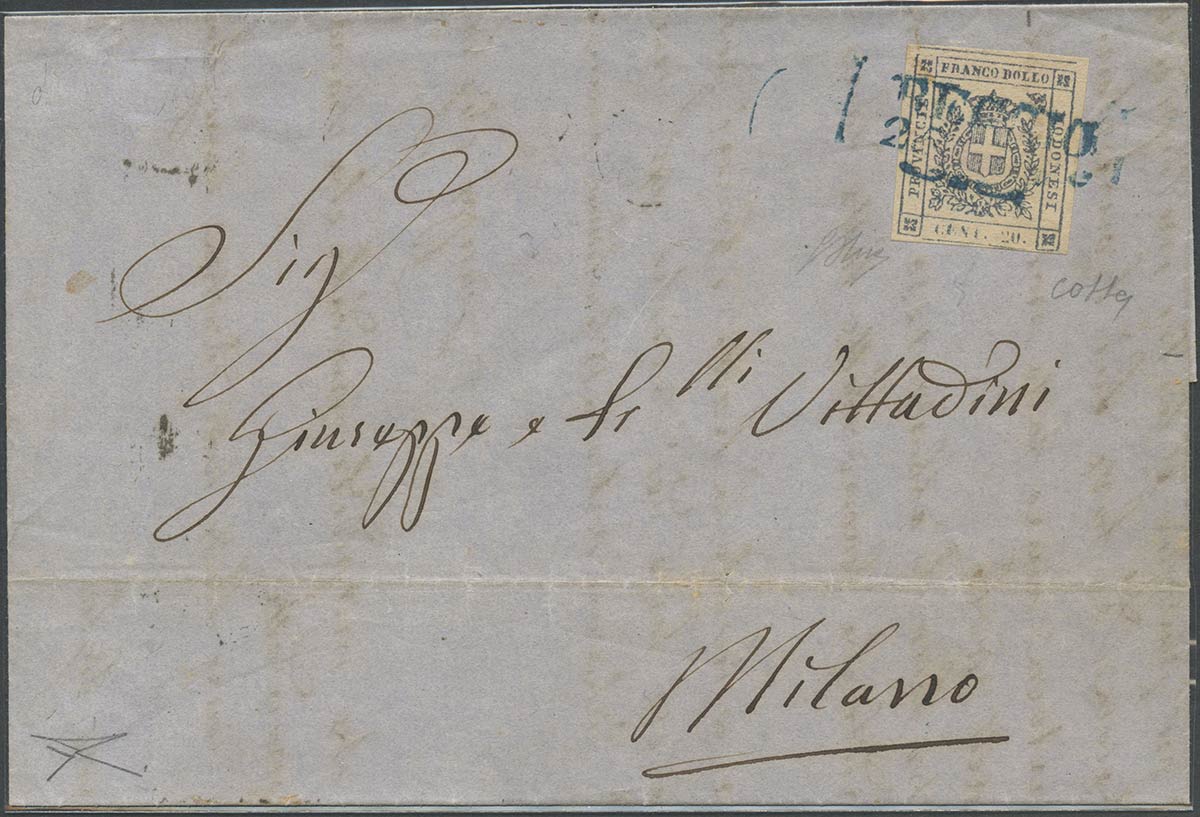 FRANCO BOLLO
PROVINCIE
MODONESI
CENT. 20.
REGGIO
Sig
Giuseppe e Fr lli Vittadini
Milano